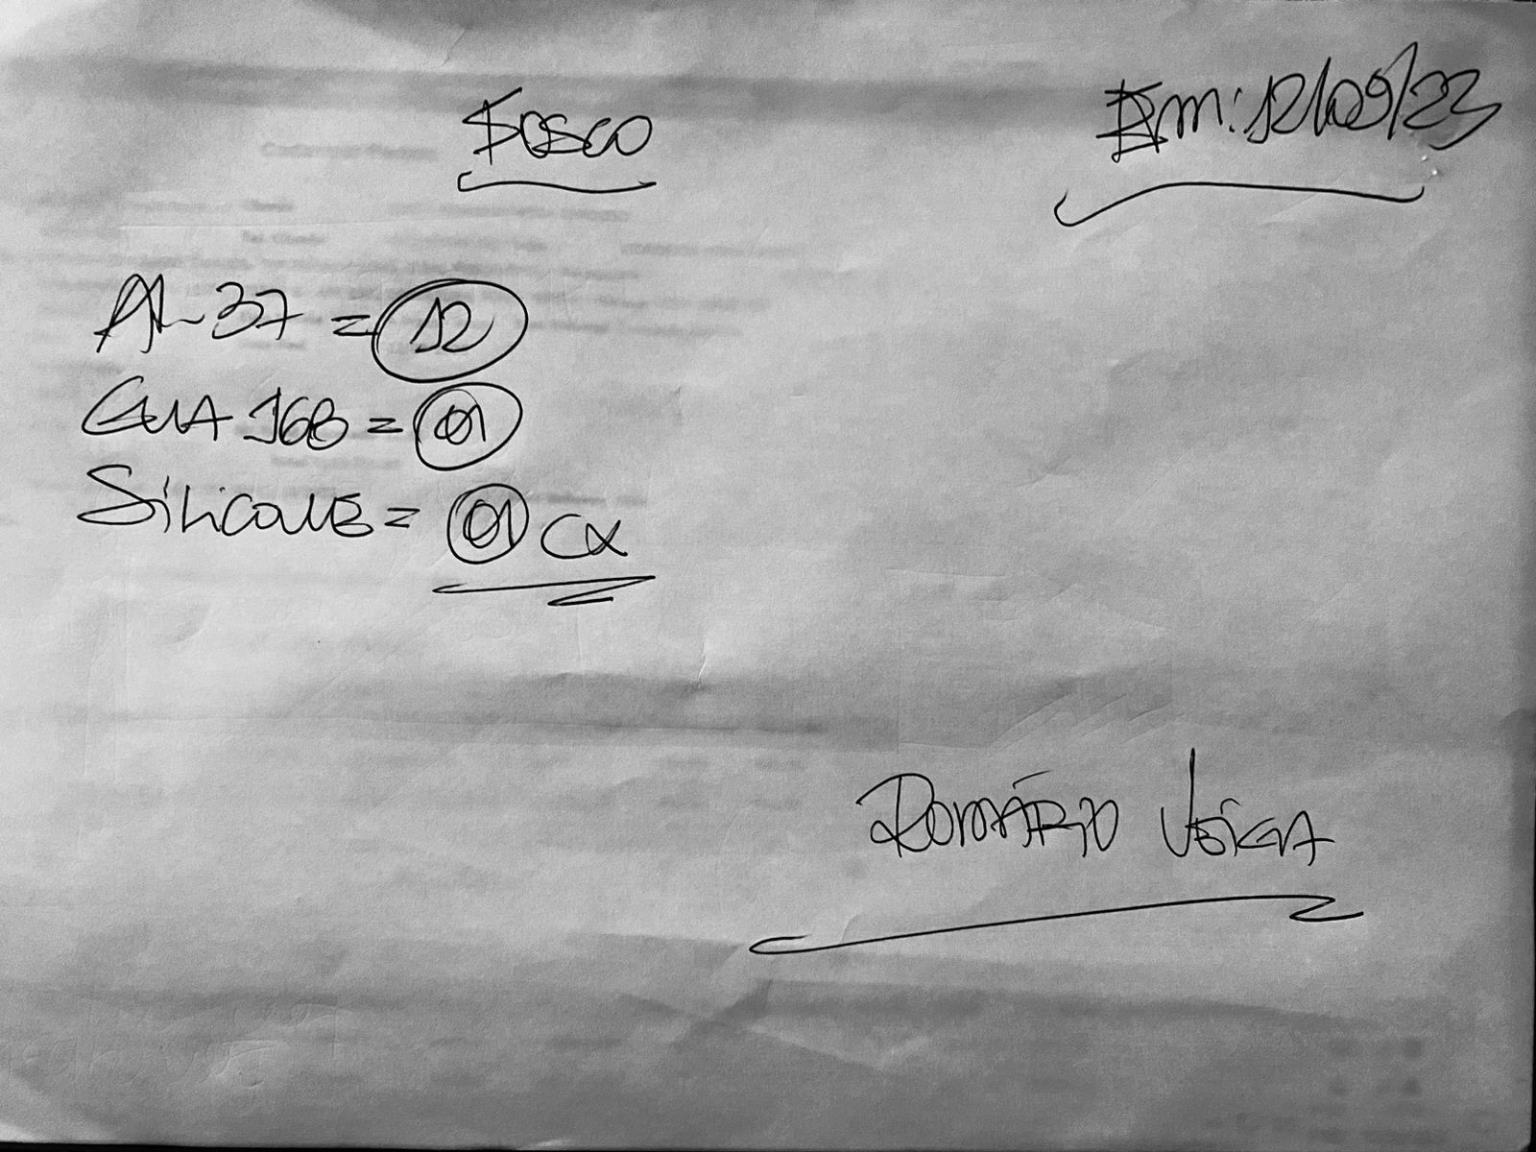 Fosco
Em: 12/09/23
AL-37 = 12
GUA 168 = 01
SiLiCONE = 01 CX
ROMÁRIO VEIGA